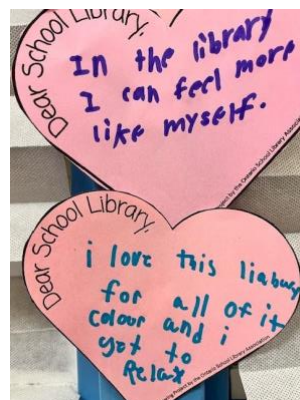 Dear School Library,
In the library
I can feel more
like myself.
project by the Ontario School Library Association
Dear School Library,
i love this liabury
for all of it
colour and i
get to
Relax
Project by the Ontario School Library Association